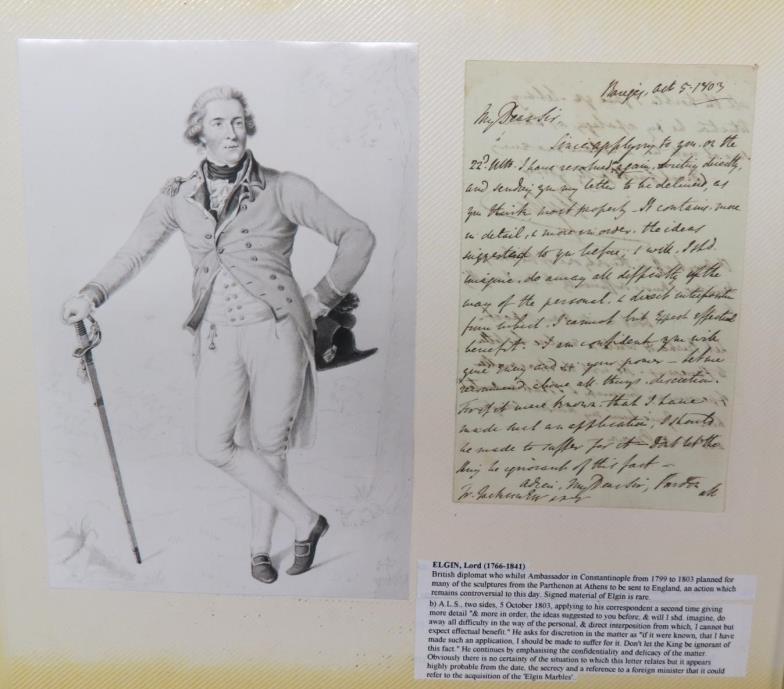 Bareges, Oct 5. 1803
My Dear Sir
Since applying to you on the
22d. Ulto. I have resolved again, writing directly,
and sending you my letter to be delivered, as
you think most proper. It contains, more
in detail, & more in order, the ideas
suggested to you before, & will, I shd.
imagine, do away all difficulty in the
way of the personal, & direct interposition
from which, I cannot but expect effectual
benefit. I am confident you will
give every aid in your power – let me
recommend above all things, discretion.
For if it were known, that I have
made such an application, I should
be made to suffer for it – Don't let the
King be ignorant of this fact –
adieu, My Dear Sir, Pardon
Fr. Jackson Esqr
ELGIN, Lord (1766-1841)
British diplomat who whilst Ambassador in Constantinople from 1799 to 1803 planned for
many of the sculptures from the Parthenon at Athens to be sent to England, an action which
remains controversial to this day. Signed material of Elgin is rare.
b) A.L.S., two sides, 5 October 1803, applying to his correspondent a second time giving
more detail "& more in order, the ideas suggested to you before, & will I shd. imagine, do
away all difficulty in the way of the personal, & direct interposition from which, I cannot but
expect effectual benefit." He asks for discretion in the matter as "if it were known, that I have
made such an application, I should be made to suffer for it. Don't let the King be ignorant of
this fact." He continues by emphasising the confidentiality and delicacy of the matter.
Obviously there is no certainty of the situation to which this letter relates but it appears
highly probable from the date, the secrecy and a reference to a foreign minister that it could
refer to the acquisition of the 'Elgin Marbles'.